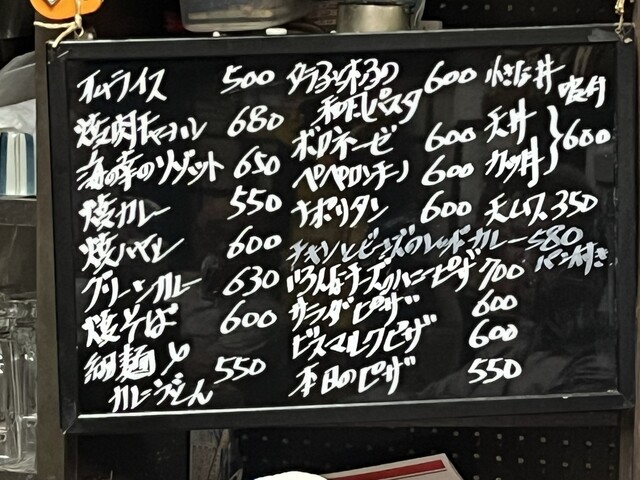 オムライス 500
焼肉チャーハン 680
海の幸のリゾット 650
焼カレー 550
焼ハヤシ 600
グリーンカレー 630
焼そば 600
細麺
カレーうどん 550
タラコと水菜の
和風パスタ 600
ボロネーゼ 600
ペペロンチーノ 600
ナポリタン 600
チキンとビーンズのレッドカレー 580
パン付き
いろんなチーズのハニーピザ 700
サラダピザ 600
ビスマルクピザ 600
本日のピザ 550
小さな丼
天丼
カツ丼
600
天ムス 350